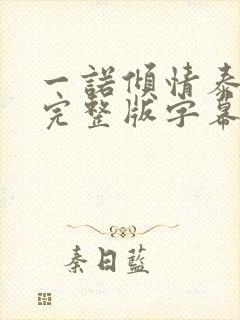 一諾傾情泰
完整版字幕
秦日藍